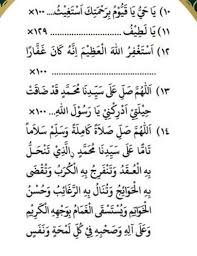 ١٠) يَا حَيُّ يَا قَيُّوْمُ بِرَحْمَتِكَ اَسْتَغِيْثُ...×١٠٠
١١) يَا لَطِيْفُ ............................ ×١٢٩
١٢) اَسْتَغْفِرُ اللهَ الْعَظِيْمَ إِنَّهُ كَانَ غَفَّارًا
......................................... ×١٠٠
١٣) اَللّٰهُمَّ صَلِّ عَلَى سَيِّدِنَا مُحَمَّدٍ قَدْ ضَاقَتْ
حِيْلَتِيْ أَدْرِكْنِيْ يَا رَسُوْلَ اللهِ...... ×١٠٠
١٤) اَللّٰهُمَّ صَلِّ صَلاَةً كَامِلَةً وَسَلِّمْ سَلاَمًا
تَامًّا عَلَى سَيِّدِنَا مُحَمَّدٍ ࣙالَّذِيْ تَنْحَلُّ
بِهِ الْعُقَدُ وَتَنْفَرِجُ بِهِ الْكُرَبُ وَتُقْضَى
بِهِ الْحَوَائِجُ وَتُنَالُ بِهِ الرَّغَائِبُ وَحُسْنُ
الْخَوَاتِمِ وَيُسْتَسْقَى الْغَمَامُ بِوَجْهِهِ الْكَرِيْمِ
وَعَلَى آلِهِ وَصَحْبِهِ فِيْ كُلِّ لَمْحَةٍ وَنَفَسٍ